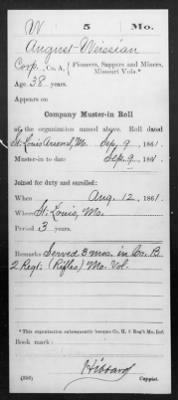 W 5 Mo.
August Weissian
Corp., Co. A, Pioneers, Sappers and Miners,
Missouri Vols.*
Age 38 years.
Appears on
Company Muster-in Roll
of the organization named above. Roll dated
St. Louis Arsenal, Mo. Sep. 9, 1861.
Muster-in to date Sep. 9, 1861.
Joined for duty and enrolled:
When Aug. 12, 1861.
Where St. Louis, Mo.
Period 3 years.
Remarks Served 3 mos. in Co. B
2 Regt. (Rifles) Mo. Vol.
*This organization subsequently became Co. H, 5 Reg't Mo. Inf.
Book mark:
Hibbard
(356) Copyist.